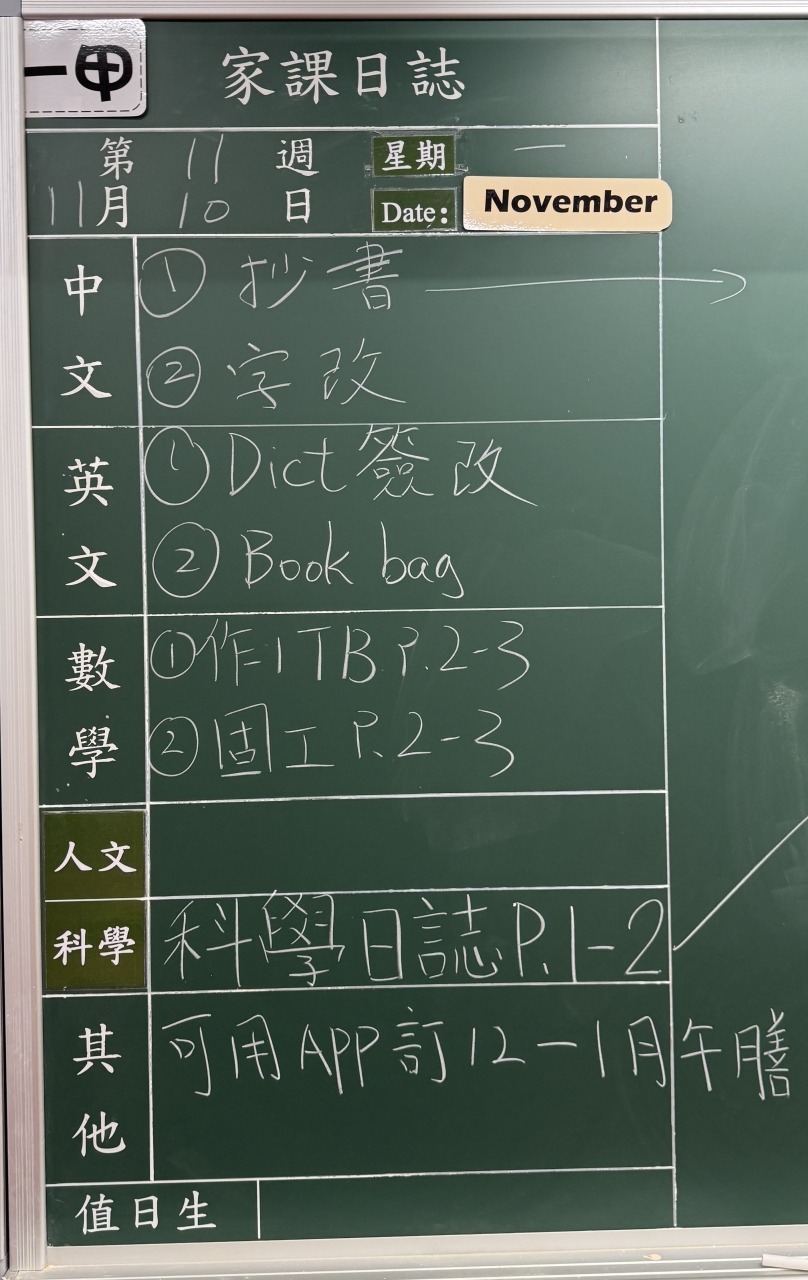 一甲 家課日誌
第 11 週 星期 一
11月 10 日 Date: November
中文 ① 抄書 →
② 字改
英文 ① Dict 簽改
② Book bag
數學 ① 作1TB P.2-3
② 固工 P.2-3
人文
科學 科學日誌 P.1-2
其他 可用APP訂12-1月午膳
值日生